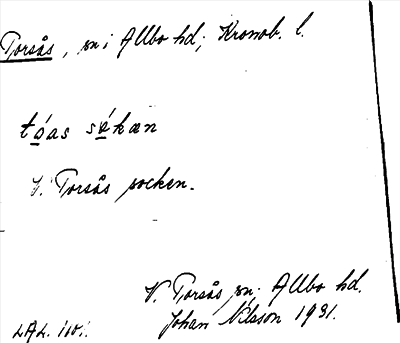 Torsås, sn i Allbo hd; Kronob. l.
tóas sókæn
V. Torsås socken.
V. Torsås sn. Allbo hd.
Johan Nilsson 1931.